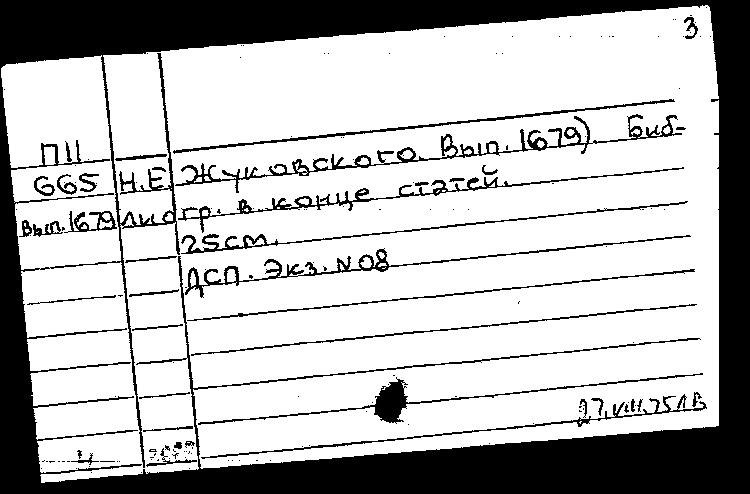 3
П11
665 Н.Е. Жуковского. Вып. 1679). Биб-
Вып. 1679 лиогр. в конце статей.
25см.
ДСП. Экз. №08
27.VIII.75 ЛВ
4